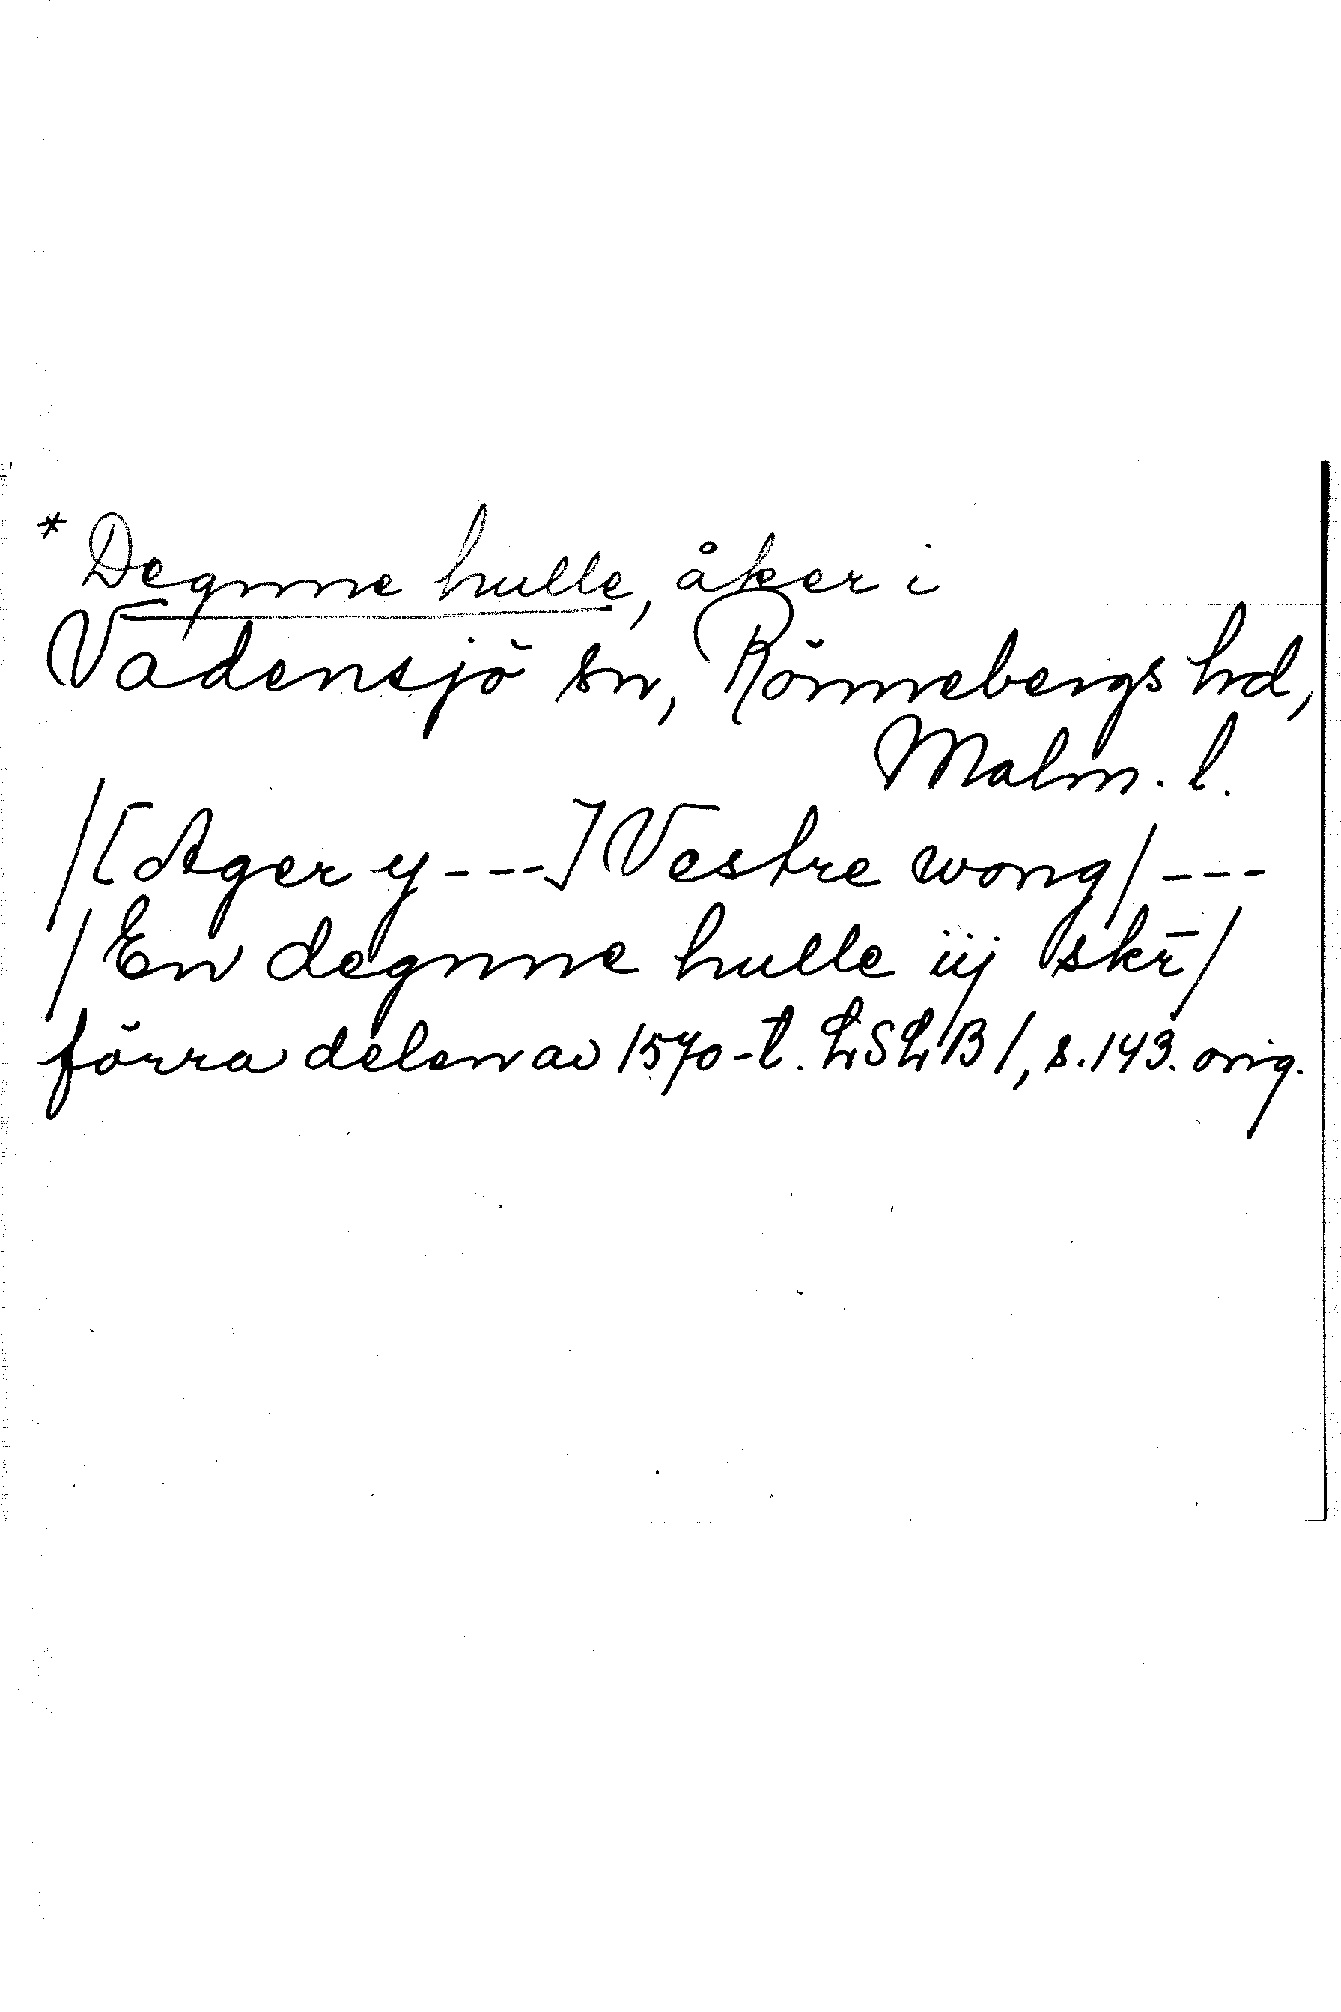 * Degnne hulle, åker i
Vadensjö sn, Rönnebergs hd,
Malm. l.
/[Ager y---] Vestre wong/---
/En degnne hulle iij skr̄/
förra delen av 1570-t. LSLB 1, s. 143. orig.